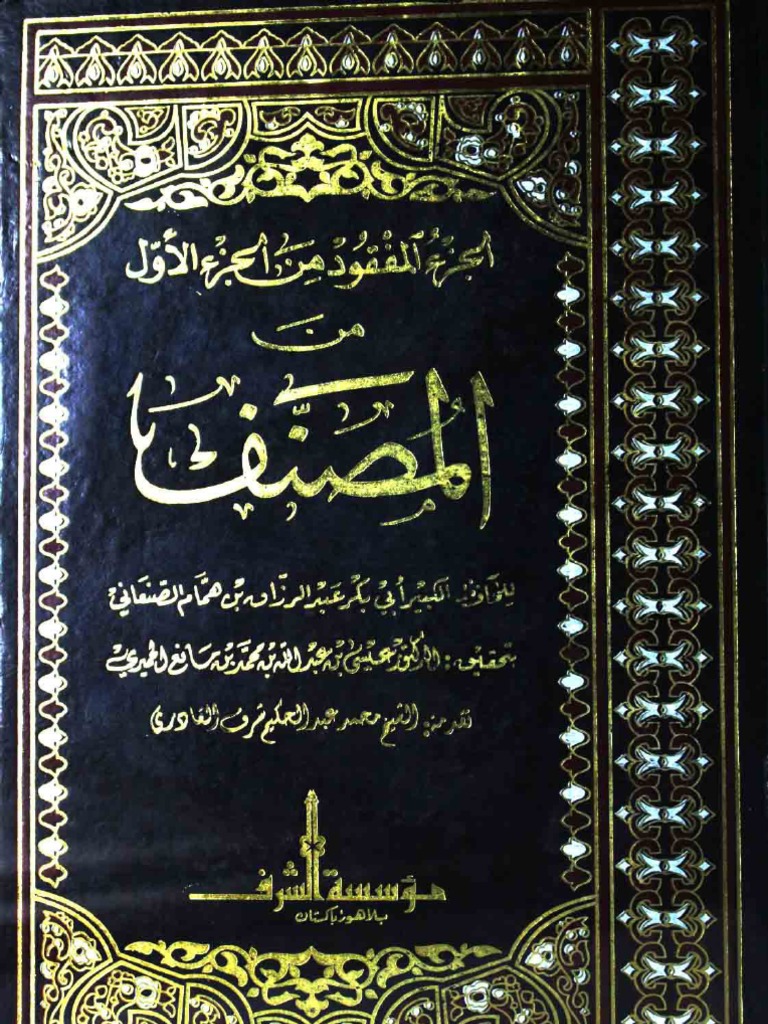 الجزءُ المفْقُودْ مِنَ الجزءِ الأوّل
مِنَ
المُصَنَّف
للحافظ الكبير أبي بكر عبد الرزاق بن همّام الصّنعاني
بتحقيق: الدكتور عيسى بن عبد الله بن محمّد بن مانع الحميري
تقدمة: الشيخ محمد عبد الحكيم شرف القادري
مؤسسة الشرف
بلاهور باكستان